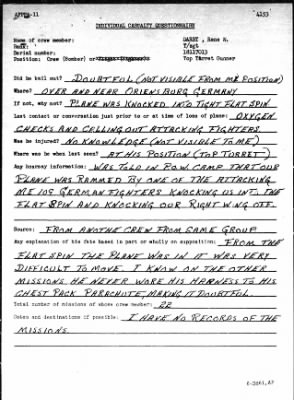 APPTS-11 4153
INDIVIDUAL CASUALTY QUESTIONNAIRE
Name of crew member: Rene R.
Rank: T/sgt
Serial number: 16117013
Position: Crew (Bomber) or Top Turret Gunner
Did he bail out? DOUBTFUL (NOT VISIBLE FROM ME POSITION)
Where? OVER AND NEAR ORIENSBURG GERMANY
If not, why not? PLANE WAS KNOCKED INTO TIGHT FLAT SPIN
Last contact or conversation just prior to or at time of loss: OXYGEN
CHECKS AND CALLING OUT ATTACKING FIGHTERS.
Was he injured? NO KNOWLEDGE (NOT VISIBLE TO ME)
Where was he when last seen? AT HIS POSITION (TOP TORRET)
Any hearsay information: WAS TOLD IN P.O.W. CAMP THAT OUR
PLANE WAS RAMMED BY ONE OF THE ATTACKING
ME 109 GERMAN FIGHTERS KNOCKING US INTO THE
FLAT SPIN AND KNOCKING OUR RIGHT WING OFF.
Source: FROM ANOTHE CREW FROM SAME GROUP
Any explanation of his fate based in part or wholly on supposition: FROM THE
FLAT SPIN THE PLANE WAS IN IT WAS VERY
DIFFICULT TO MOVE. I KNOW ON THE OTHER
MISSIONS HE NEVER WORE HIS HARNESS TO HIS
CHEST PACK PARACHUTE, MAKING IT DOUBTFUL.
Total number of missions of above crew member: 22
Dates and destinations if possible: I HAVE NO RECORDS OF THE
MISSIONS.